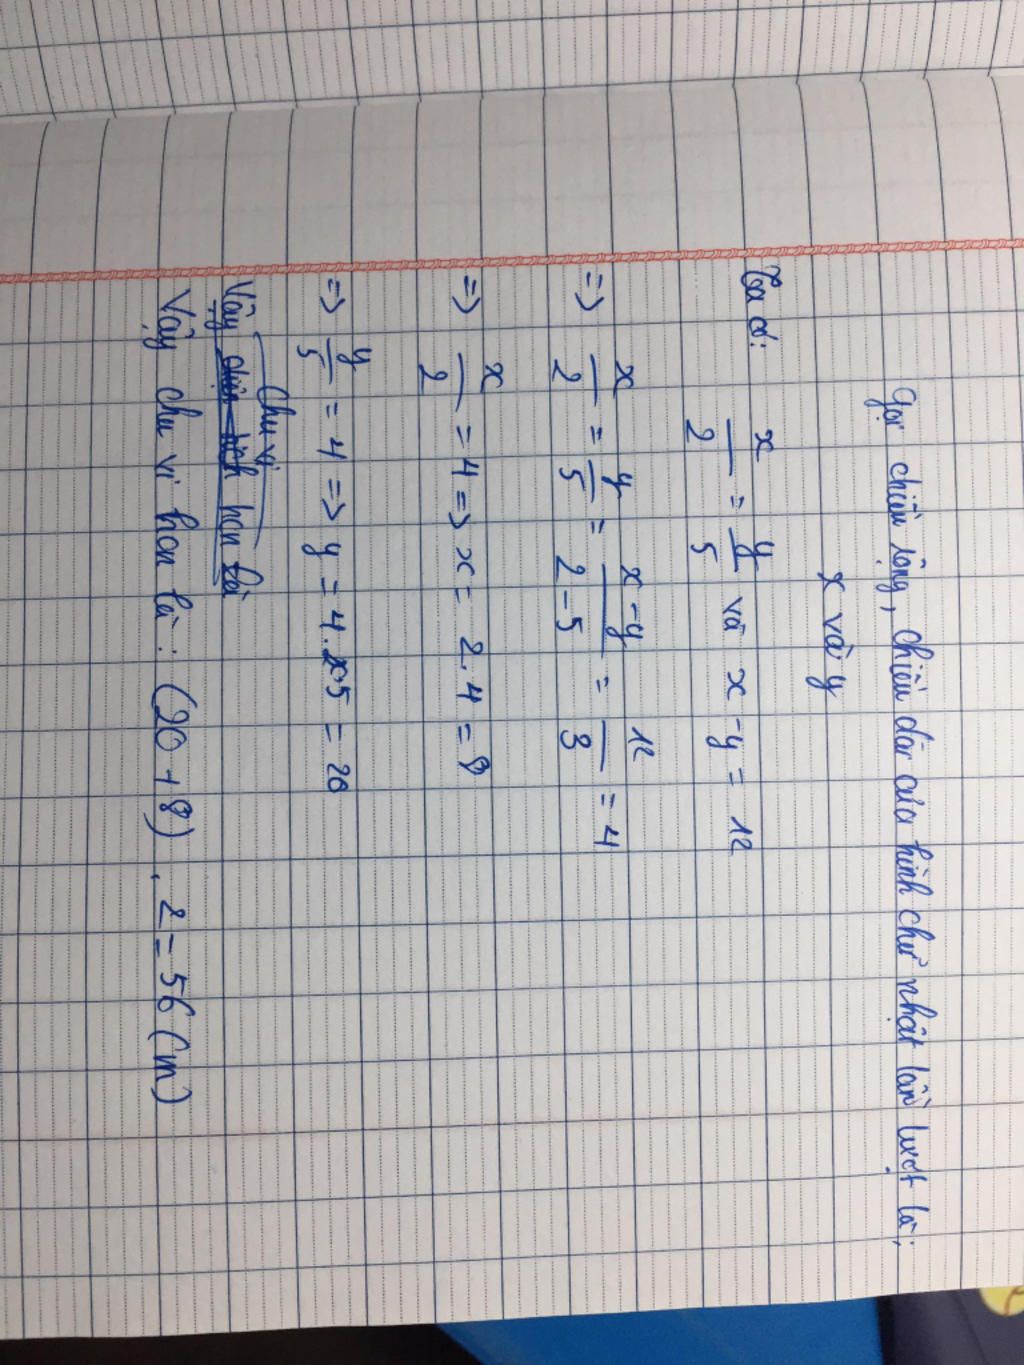 Gọi chiều rộng, chiều dài của hình chữ nhật lần lượt là:
x và y
Ta có: x/2 = y/5 và x - y = 12
=> x/2 = y/5 = x-y/2-5 = 12/3 = 4
=> x/2 = 4 => x = 2.4 = 8
=> y/5 = 4 => y = 4.5 = 20
Chu vi
Vậy diện tích hcn là
Vậy chu vi hcn là: (20 + 8) . 2 = 56 (m)